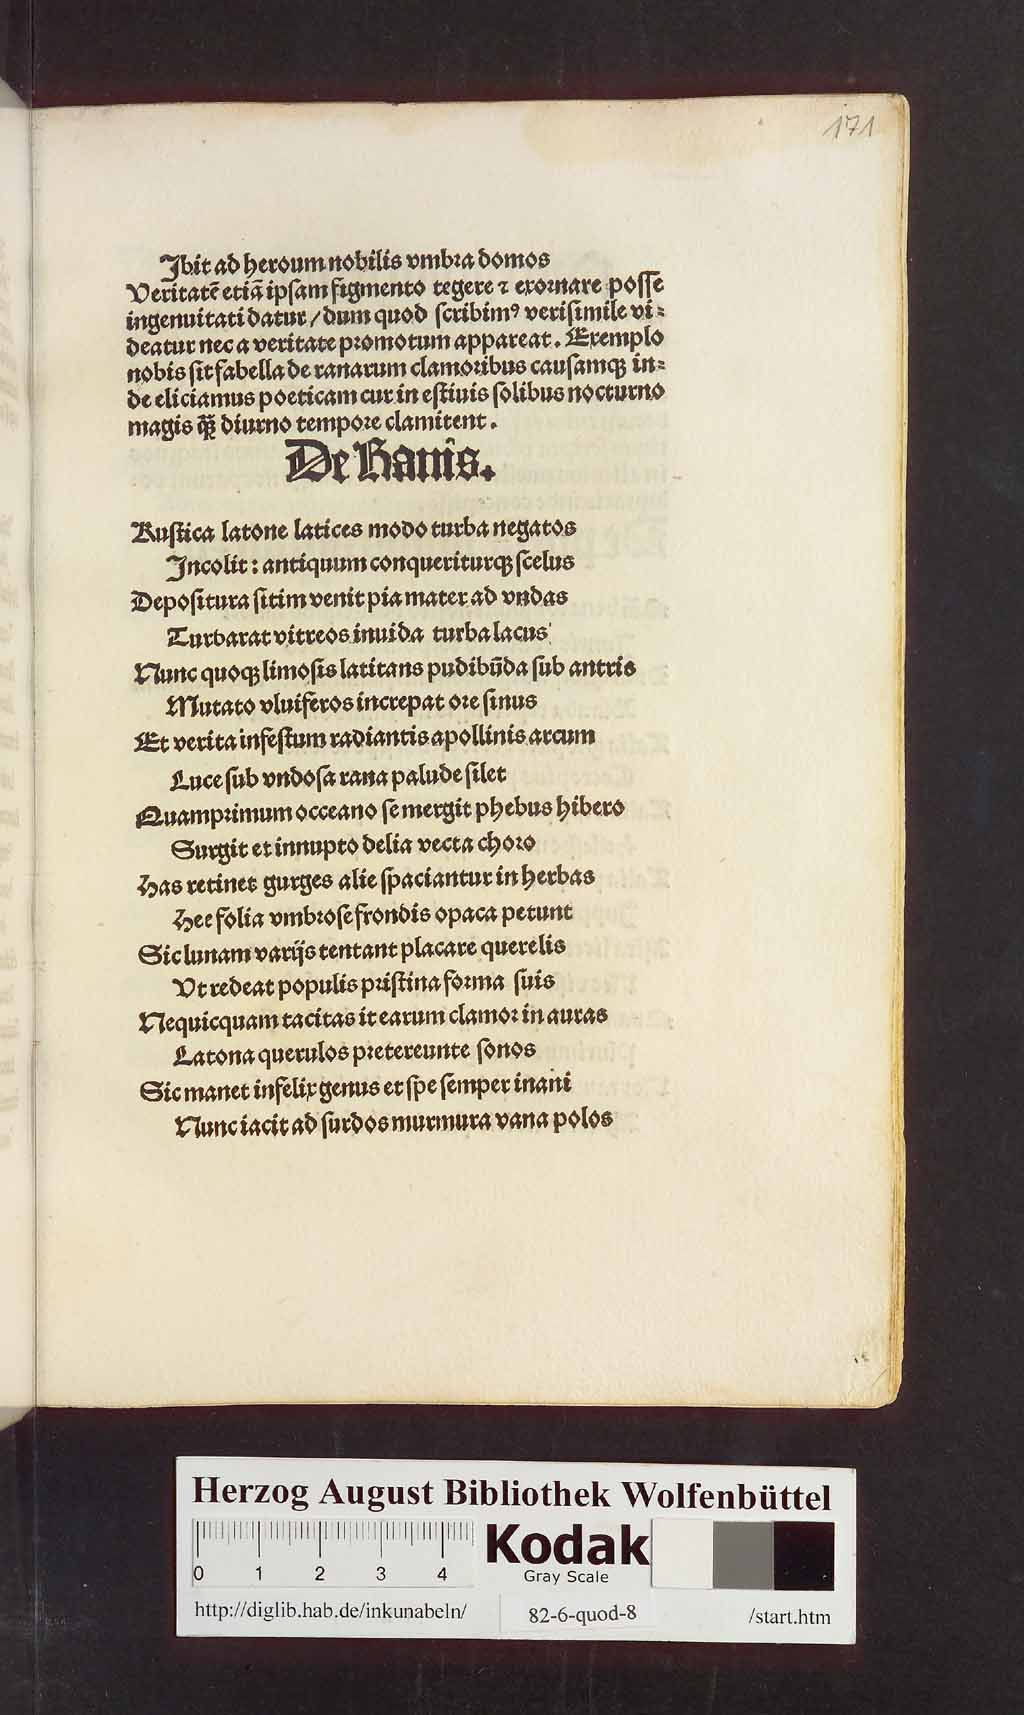 171
Ibit ad heroum nobilis vmbra domos
Veritatē etiā ipsam figmento tegere ⁊ exornare posse
ingenuitati datur / dum quod scribimꝰ verisimile vi⸗
deatur nec a veritate promotum appareat. Exemplo
nobis sit fabella de ranarum clamoribus causamqꝫ in⸗
de eliciamus poeticam cur in estiuis solibus nocturno
magis qꝫ̄ diurno tempore clamitent.
De Ranis.
Rustica latone latices modo turba negatos
Incolit: antiquum conqueriturqꝫ scelus
Depositura sitim venit pia mater ad vndas
Turbarat vitreos inuida turba lacus
Nunc quoqꝫ limosis latitans pudibūda sub antris
Mutato vluiferos increpat ore sinus
Et verita infestum radiantis apollinis arcum
Luce sub vndosa rana palude silet
Quamprimum occeano se mergit phebus hibero
Surgit et innupto delia vecta choro
Has retinet gurges alie spaciantur in herbas
Hee folia vmbrose frondis opaca petunt
Sic lunam varijs tentant placare querelis
Vt redeat populis pristina forma suis
Nequicquam tacitas it earum clamor in auras
Latona querulos pretereunte sonos
Sic manet infelix genus et spe semper inani
Nunc iacit ad surdos murmura vana polos
Herzog August Bibliothek Wolfenbüttel
0 1 2 3 4
Kodak
Gray Scale
http://diglib.hab.de/inkunabeln/ 82-6-quod-8 /start.htm